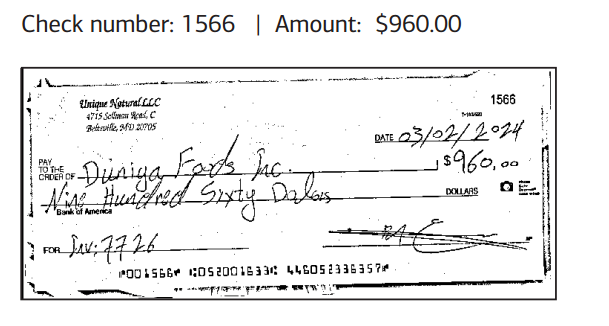 Check number: 1566 | Amount: $960.00
Unique Natural LLC
4715 Sellman Road, C
Beltsville, MD 20705
1566
DATE 03/02/2024
PAY TO THE ORDER OF Duniga Foods Inc.
$960.00
Nine Hundred Sixty Dalors DOLLARS
Bank of America
FOR Inv: 7726
⑈001566⑈ ⑆052001633⑆ 446052336357⑈